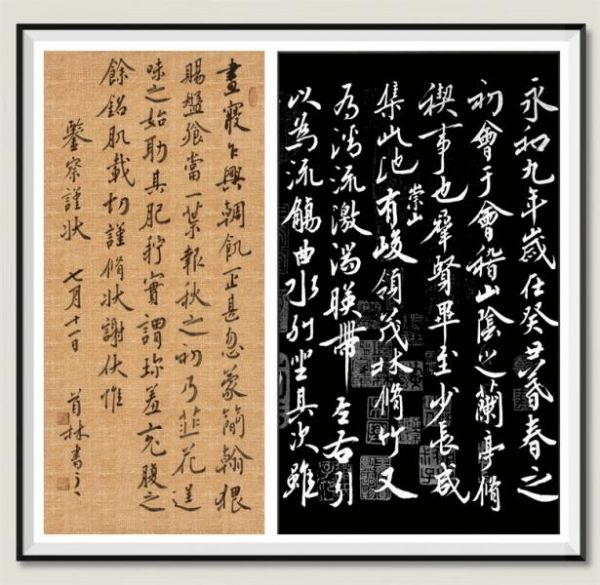 永和九年歲在癸丑暮春之
初會于會稽山陰之蘭亭脩
禊事也羣賢畢至少長咸
集此地有崇山峻領茂林脩竹又
有清流激湍暎帶左右引
以為流觴曲水列坐其次雖
晝寢乍興朝飢正甚忽蒙簡翰猥
賜盤飧當一葉報秋之初乃韭花逞
味之始助其肥羜實謂珍羞充腹之
餘銘肌載切謹脩狀謝伏惟
鑒察謹狀 七月十一日
首林書之